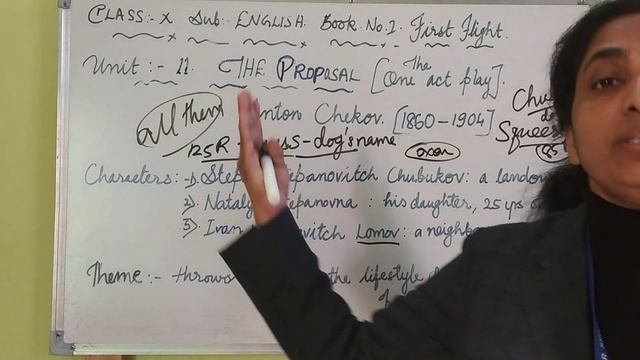 CLASS:- X Sub:- ENGLISH. Book No. 1. First Flight.
Unit:- 11. THE PROPOSAL [The One act play].
All them nton Chekov. [1860-1904]
125R ss-dog's name oxen Squee
Characters:- 1). Step tepanovitch Chubukov: a landow
2). Nataly tepanovna: his daughter, 25 yrs o
3). Ivan vitch Lomov: a neighb
Theme:- throws the lifestyle